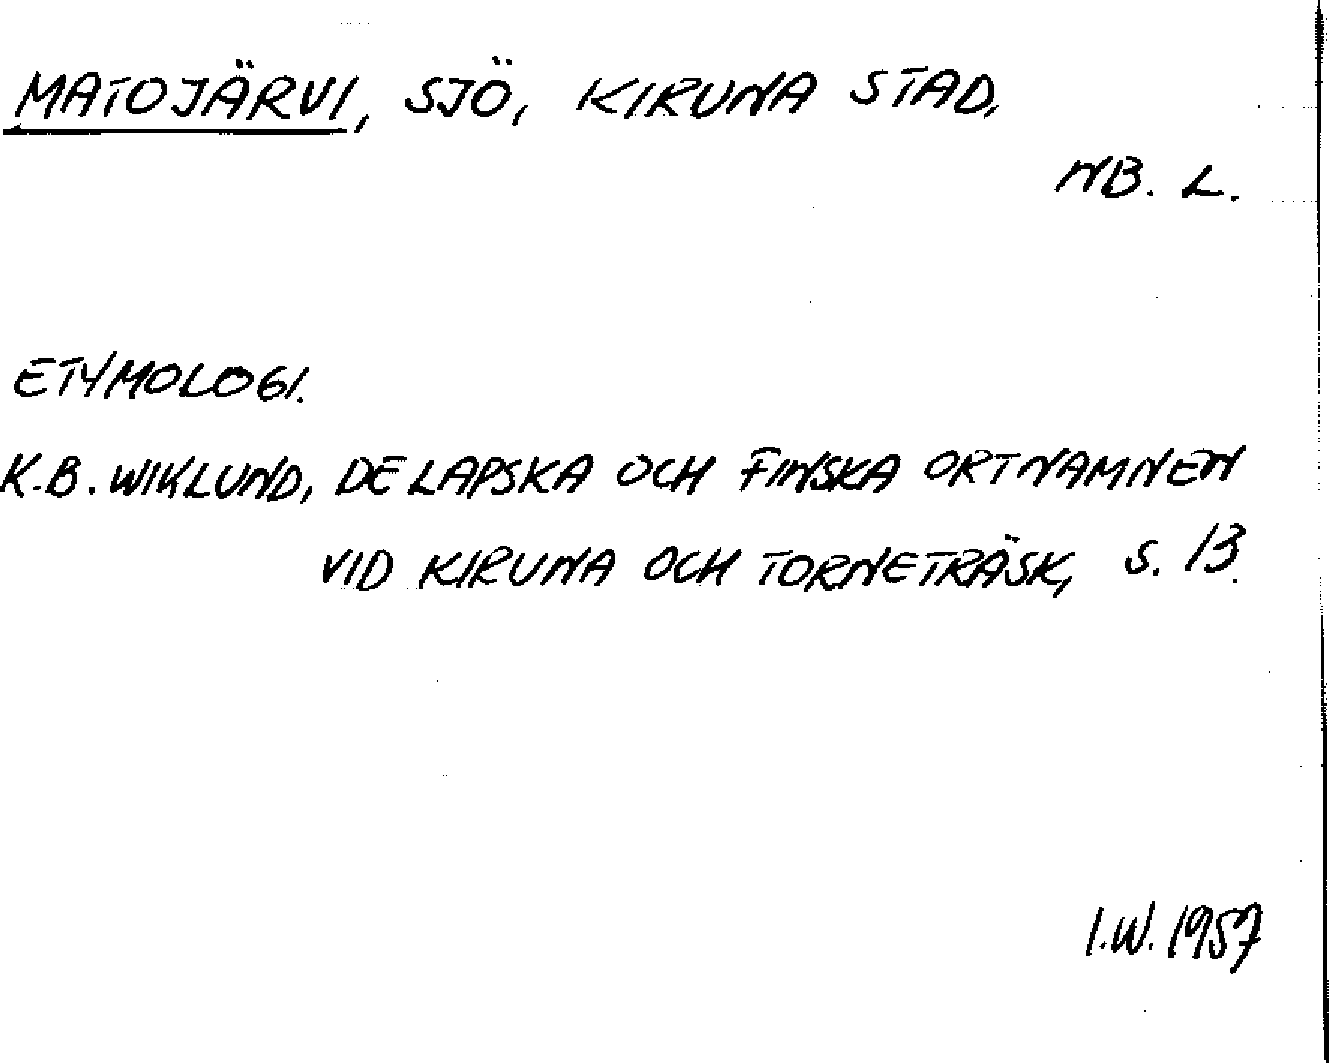 MATOJÄRVI, SJÖ, KIRUNA STAD,
NB. L.
ETYMOLOGI.
K.B. WIKLUND, DE LAPSKA OCH FINSKA ORTNAMNEN
VID KIRUNA OCH TORNETRÄSK, S. 13.
I.W. 1957